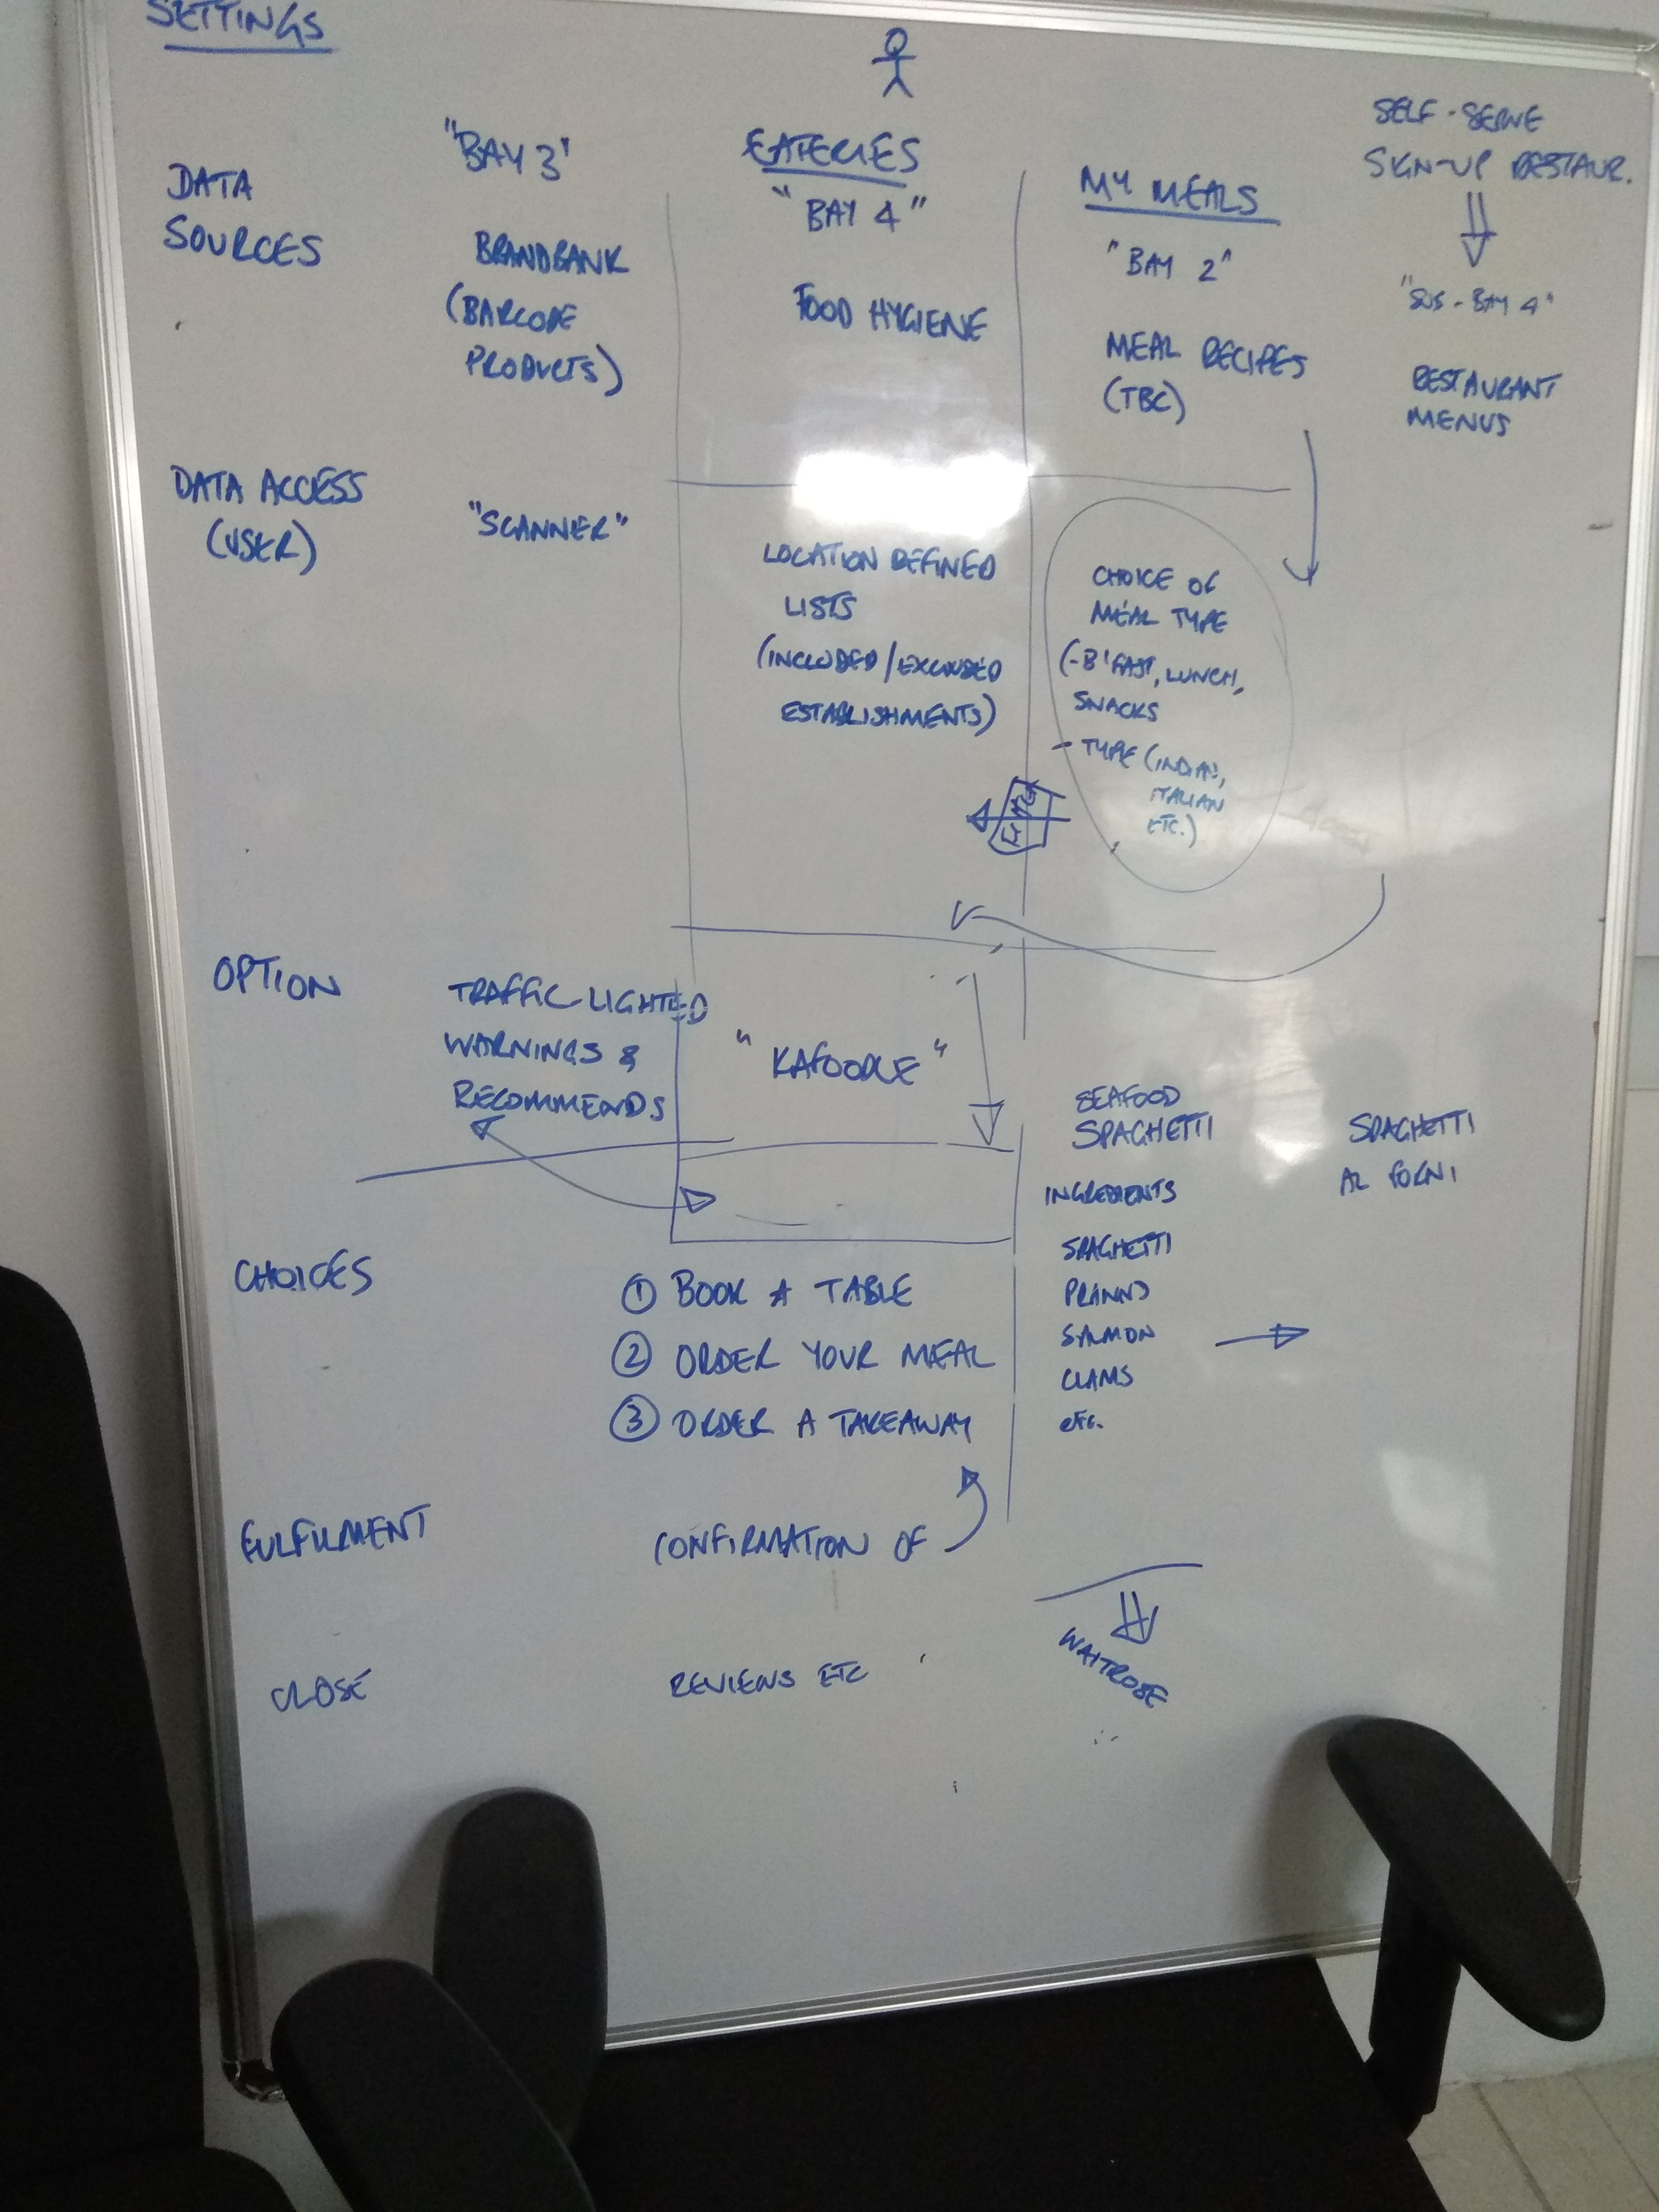 SETTINGS
"BAY 3"
EATERIES
"BAY 4"
MY MEALS
"BAY 2"
SELF-SERVE
SIGN-UP RESTAUR.
"SUB-BAY 4"
DATA
SOURCES
BRANDBANK
(BARCODE
PRODUCTS)
FOOD HYGIENE
MEAL RECIPES
(TBC)
RESTAURANT
MENUS
DATA ACCESS
(USER)
"SCANNER"
LOCATION DEFINED
LISTS
(INCLUDED/EXCLUDED
ESTABLISHMENTS)
CHOICE OF
MEAL TYPE
(-B'FAST, LUNCH,
SNACKS
- TYPE (INDIAN,
ITALIAN
ETC.)
OPTION
TRAFFIC-LIGHTED
WARNINGS &
RECOMMENDS
"KAFOODLE"
SEAFOOD
SPAGHETTI
INGREDIENTS
SPAGHETTI
PRAWNS
SALMON
CLAMS
etc.
SPAGHETTI
AL FORNI
CHOICES
① BOOK A TABLE
② ORDER YOUR MEAL
③ ORDER A TAKEAWAY
FULFILMENT
CONFIRMATION OF
WAITROSE
CLOSE
REVIEWS ETC